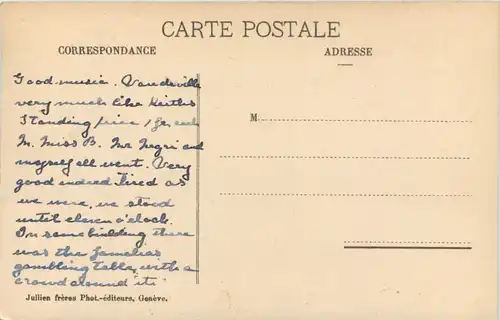 CARTE POSTALE
CORRESPONDANCE
ADRESSE
Good music. Vaudeville
very much like Keith's
Standing price 1 fr. each
M. Miss B. Mr Negri and
myself all went. Very
good indeed. Tired as
we were, we stood
until eleven o'clock.
In same building there
was the famous
gambling table, with a
crowd around it.
M.
Jullien frères Phot.-éditeurs, Genève.